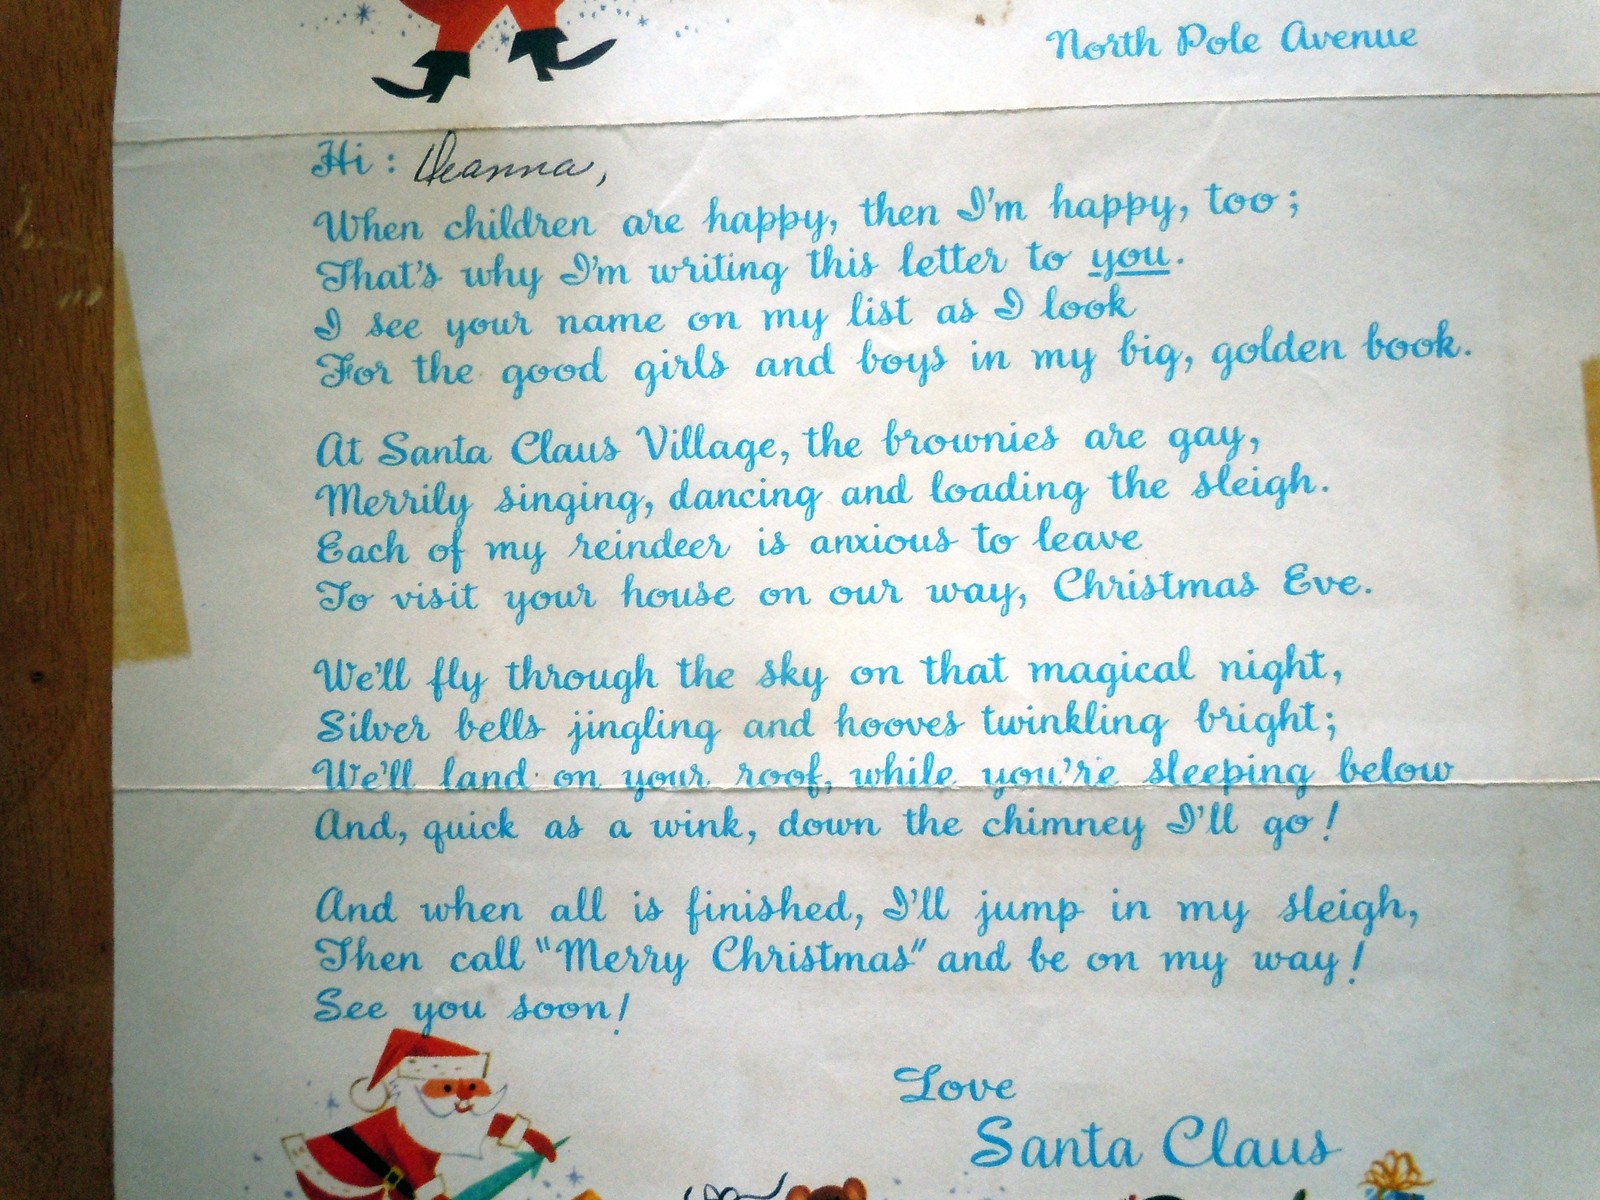 North Pole Avenue
Hi: Deanna,
When children are happy, then I'm happy, too;
That's why I'm writing this letter to you.
I see your name on my list as I look
For the good girls and boys in my big, golden book.
At Santa Claus Village, the brownies are gay,
Merrily singing, dancing and loading the sleigh.
Each of my reindeer is anxious to leave
To visit your house on our way, Christmas Eve.
We'll fly through the sky on that magical night,
Silver bells jingling and hooves twinkling bright;
We'll land on your roof, while you're sleeping below
And, quick as a wink, down the chimney I'll go!
And when all is finished, I'll jump in my sleigh,
Then call "Merry Christmas" and be on my way!
See you soon!
Love
Santa Claus